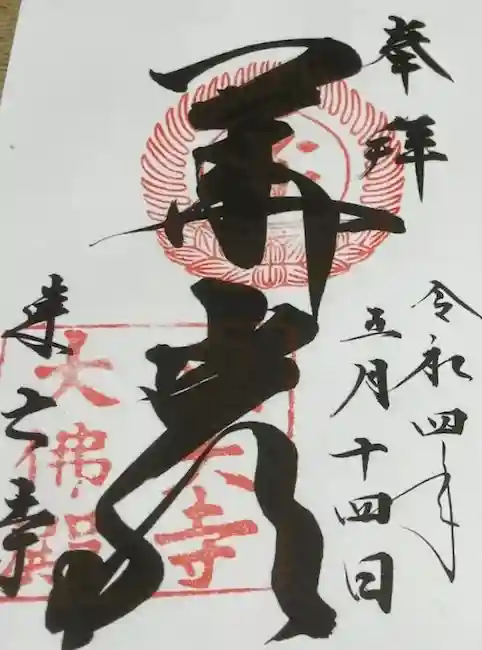 奉拝
令和四年
五月十四日
華嚴
東大寺
東大寺
大佛殿